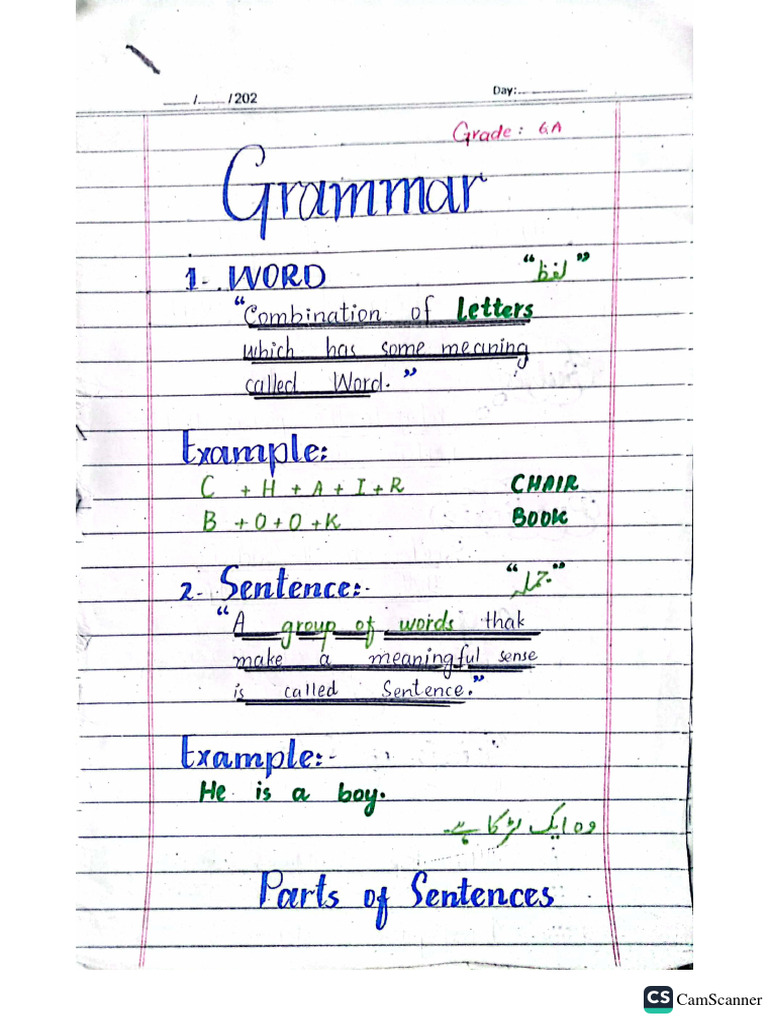 __/__/202 Day:
Grade: 6A
Grammar
1- WORD "لفظ"
"Combination of letters
which has some meaning
called Word."
Example:
C + H + A + I + R CHAIR
B + O + O + K BOOK
2- Sentence:- "جملہ"
"A group of words that
make a meaningful sense
is called Sentence."
Example:-
He is a boy.
وہ ایک لڑکا ہے۔
Parts of Sentences
CS CamScanner